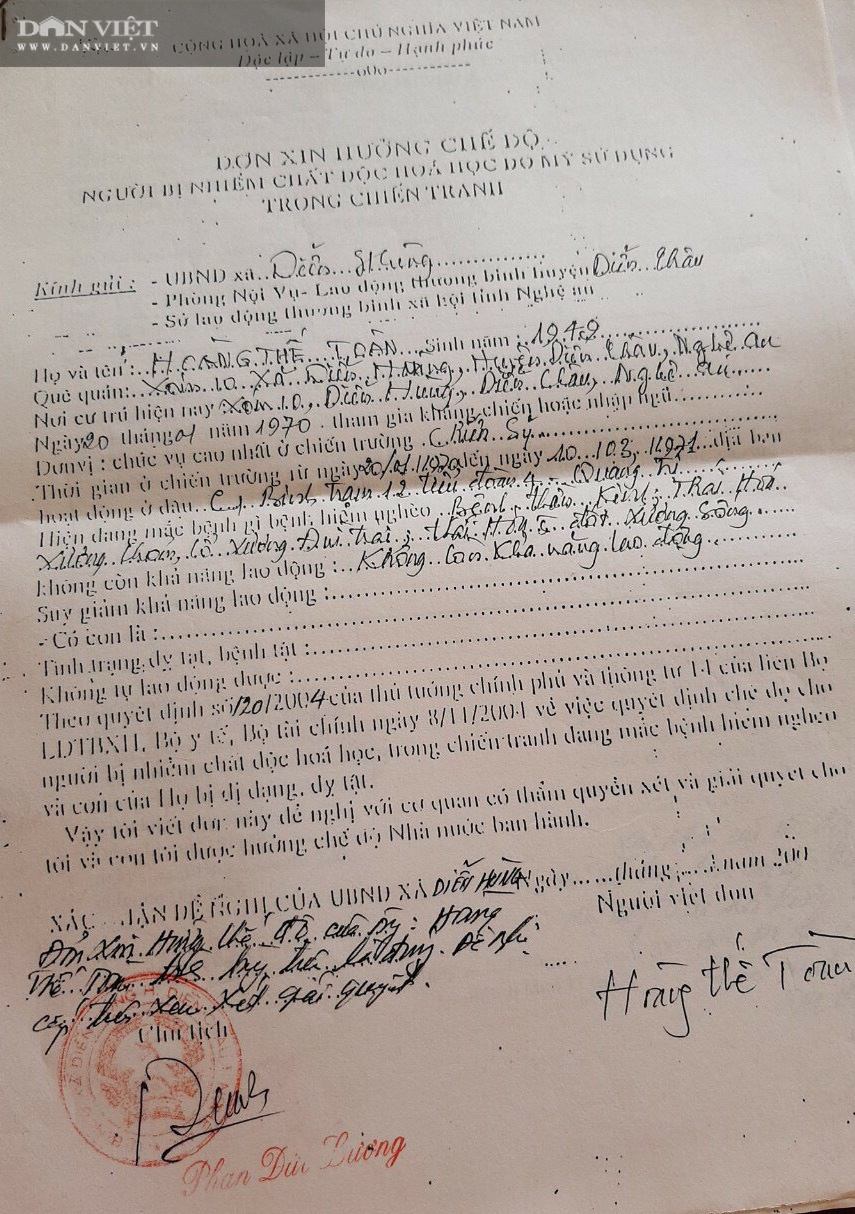 DÂN VIỆT
WWW.DANVIET.VN
CỘNG HOÀ XÃ HỘI CHỦ NGHĨA VIỆT NAM
Độc lập – Tự do – Hạnh phúc
------------o0o------------
ĐƠN XIN HƯỞNG CHẾ ĐỘ
NGƯỜI BỊ NHIỄM CHẤT ĐỘC HOÁ HỌC DO MỸ SỬ DỤNG
TRONG CHIẾN TRANH
Kính gửi: - UBND xã Diễn Hùng
- Phòng Nội Vụ- Lao động thương binh huyện Diễn Châu
- Sở lao động thương binh xã hội tỉnh Nghệ an
Họ và tên : HOÀNG THẾ TOÀN Sinh năm : 1949
Quê quán: Xóm 10 Xã Diễn Hùng, Huyện Diễn Châu, Nghệ An
Nơi cư trú hiện nay Xóm 10, Diễn Hùng, Diễn Châu, Nghệ An
Ngày 20 tháng 01 năm 1970 tham gia kháng chiến hoặc nhập ngũ
Đơn vị : chức vụ cao nhất ở chiến trường Chiến Sỹ
Thời gian ở chiến trường từ ngày 20/01/1970 đến ngày 10/03/1971 địa bàn
hoạt động ở đâu Binh trạm 12 tiểu đoàn 4 Quảng Trị
Hiện đang mắc bệnh gì bệnh hiểm nghèo Bệnh thần Kinh, Thoái Hóa
Xương Đùi trái, thoái Hóa đốt Xương Sống
không còn khả năng lao động : Không còn Khả năng lao động
Suy giảm khả năng lao động :
- Có con là :
Tình trạng dỵ tạt, bệnh tật :
Không tự lao động được :
Theo quyết định số 120/2004 của thủ tướng chính phủ và thông tư 14 của liên Bộ
LĐTBXH, Bộ y tế, Bộ tài chính ngày 8/11/2004 về việc quyết định chế độ cho
người bị nhiễm chất độc hoá học, trong chiến tranh đang mắc bệnh hiểm nghèo
và con của Họ bị dị dạng, dỵ tật.
Vậy tôi viết đơn này đề nghị với cơ quan có thẩm quyền xét và giải quyết cho
tôi và con tôi được hưởng chế độ Nhà nước ban hành.
XÁC NHẬN ĐỀ NGHỊ CỦA UBND XÃ DIỄN HÙNG Ngày......tháng......năm 200
Người viết đơn
Đơn Xin Hưởng chế độ của ông: Hoàng
Thế Toàn là đúng. Đề Nghị
cấp trên Xem Xét giải quyết.
Chủ tịch
Hoàng thế Toàn
Phan Đức Lương